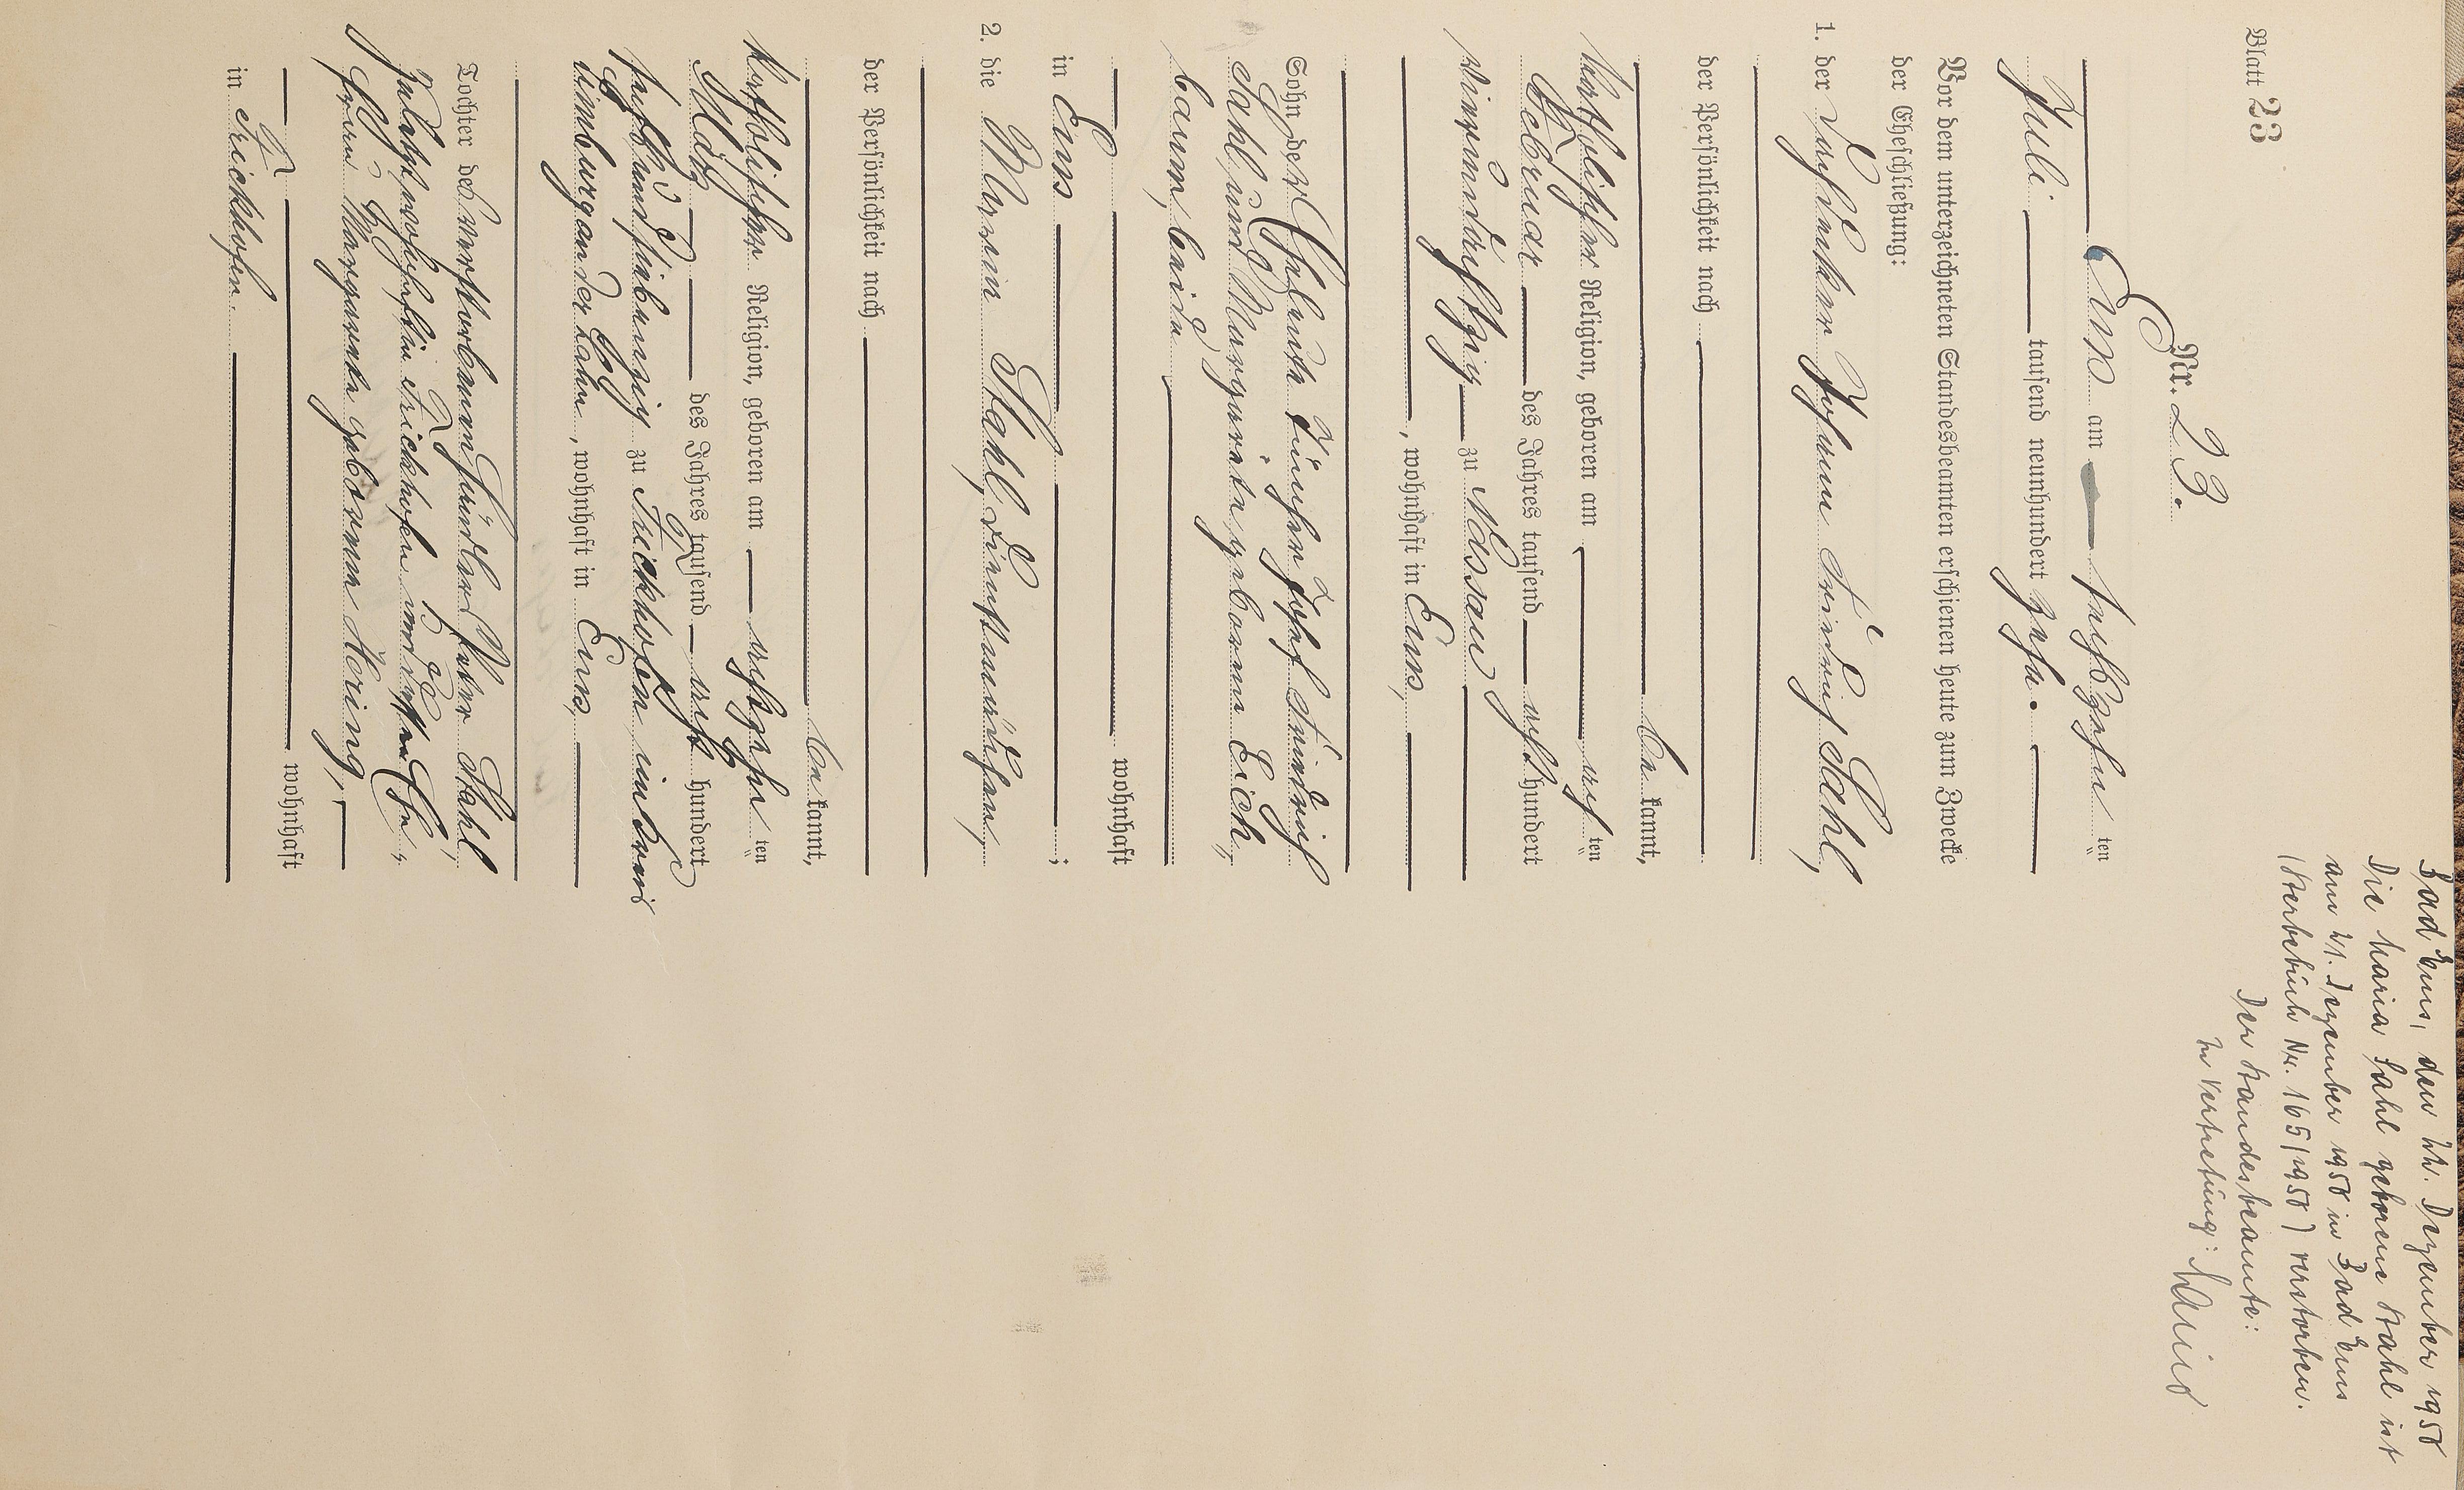 Blatt 23
Nr. 23.
Ems am sechszehn ten
Juli tausend neunhundert zehn.
Vor dem unterzeichneten Standesbeamten erschienen heute zum Zwecke
der Eheschließung:
1. der Dachdecker Johann Friedrich Sahl,
der Persönlichkeit nach
be kannt,
katholischer Religion, geboren am acht ten
Februar des Jahres tausend acht hundert
vierundachtzig zu Nassau
, wohnhaft in Ems,
Sohn der Eheleute Joseph Friedrich
Sahl und Margarete geborene Eich,
baum, beide
wohnhaft
in Ems ;
2. die Maria Stahl, Dienstmädchen,
der Persönlichkeit nach
be kannt,
katholischer Religion, geboren am achtzehn ten
März des Jahres tausend acht hundert
sechsundsiebenzig zu Frickhofen im Kreis
Limburg an der Lahn, wohnhaft in Ems,
Tochter des verstorbenen Händlers Peter Stahl,
zuletzt wohnhaft in Frickhofen und dessen Ehe,
frau Margareta geborenen Hering,
wohnhaft
in Frickhofen.
Bad Ems, den 22. Dezember 1958
Die Maria Sahl geborene Stahl ist
am 21. Dezember 1958 in Bad Ems
(Sterbebuch Nr. 165/1958) verstorben.
Der Standesbeamte:
In Vertretung: